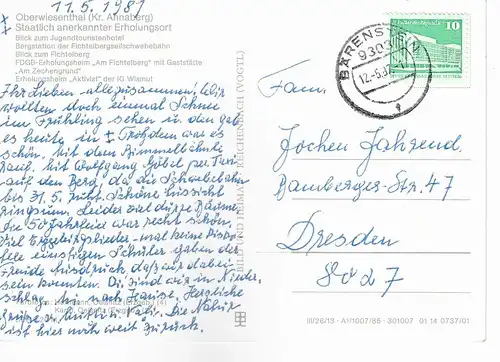 11.5.1987
Oberwiesenthal (Kr. Annaberg)
Staatlich anerkannter Erholungsort
Blick zum Jugendtouristenhotel
Bergstation der Fichtelbergseilschwebebahn
Blick zum Fichtelberg
FDGB-Erholungsheim „Am Fichtelberg" mit Gaststätte
„Am Zechengrund"
Erholungsheim „Aktivist" der IG Wismut
Ihr Lieben - allezusammen! Wir
wollten doch einmal Schnee
im Frühling sehen in den
es heute in Trotzdem war es
schön. Mit dem Bimmelbähnle
rauf. Mit Wolfgang per Taxi
auf den Berg, da die Schwebebahn
bis 31.5. ruht. Schöne Aussicht
ringsum. Leider viel dürre Bäume.
Die 50 Jahrfeier war recht schön.
Viel Erzgebirgslieder - mal keine
einstigen Schüler gaben der
Freude Ausdruck, daß wir dabei
sein konnten. Die sind wir in
schlag. nach Hause. Herzliche
Grüße von Vati. Die Natur
ist hier noch weit zurück.
BILD UND HEIMAT REICHENBACH (VOGTL)
BÄRENSTEIN
9303
10
Fam.
Jochen Jahrend
Bamberger-Str. 47
Dresden
8027
III/26/13 · A1/1007/85 · 301007 01 14 0737/01